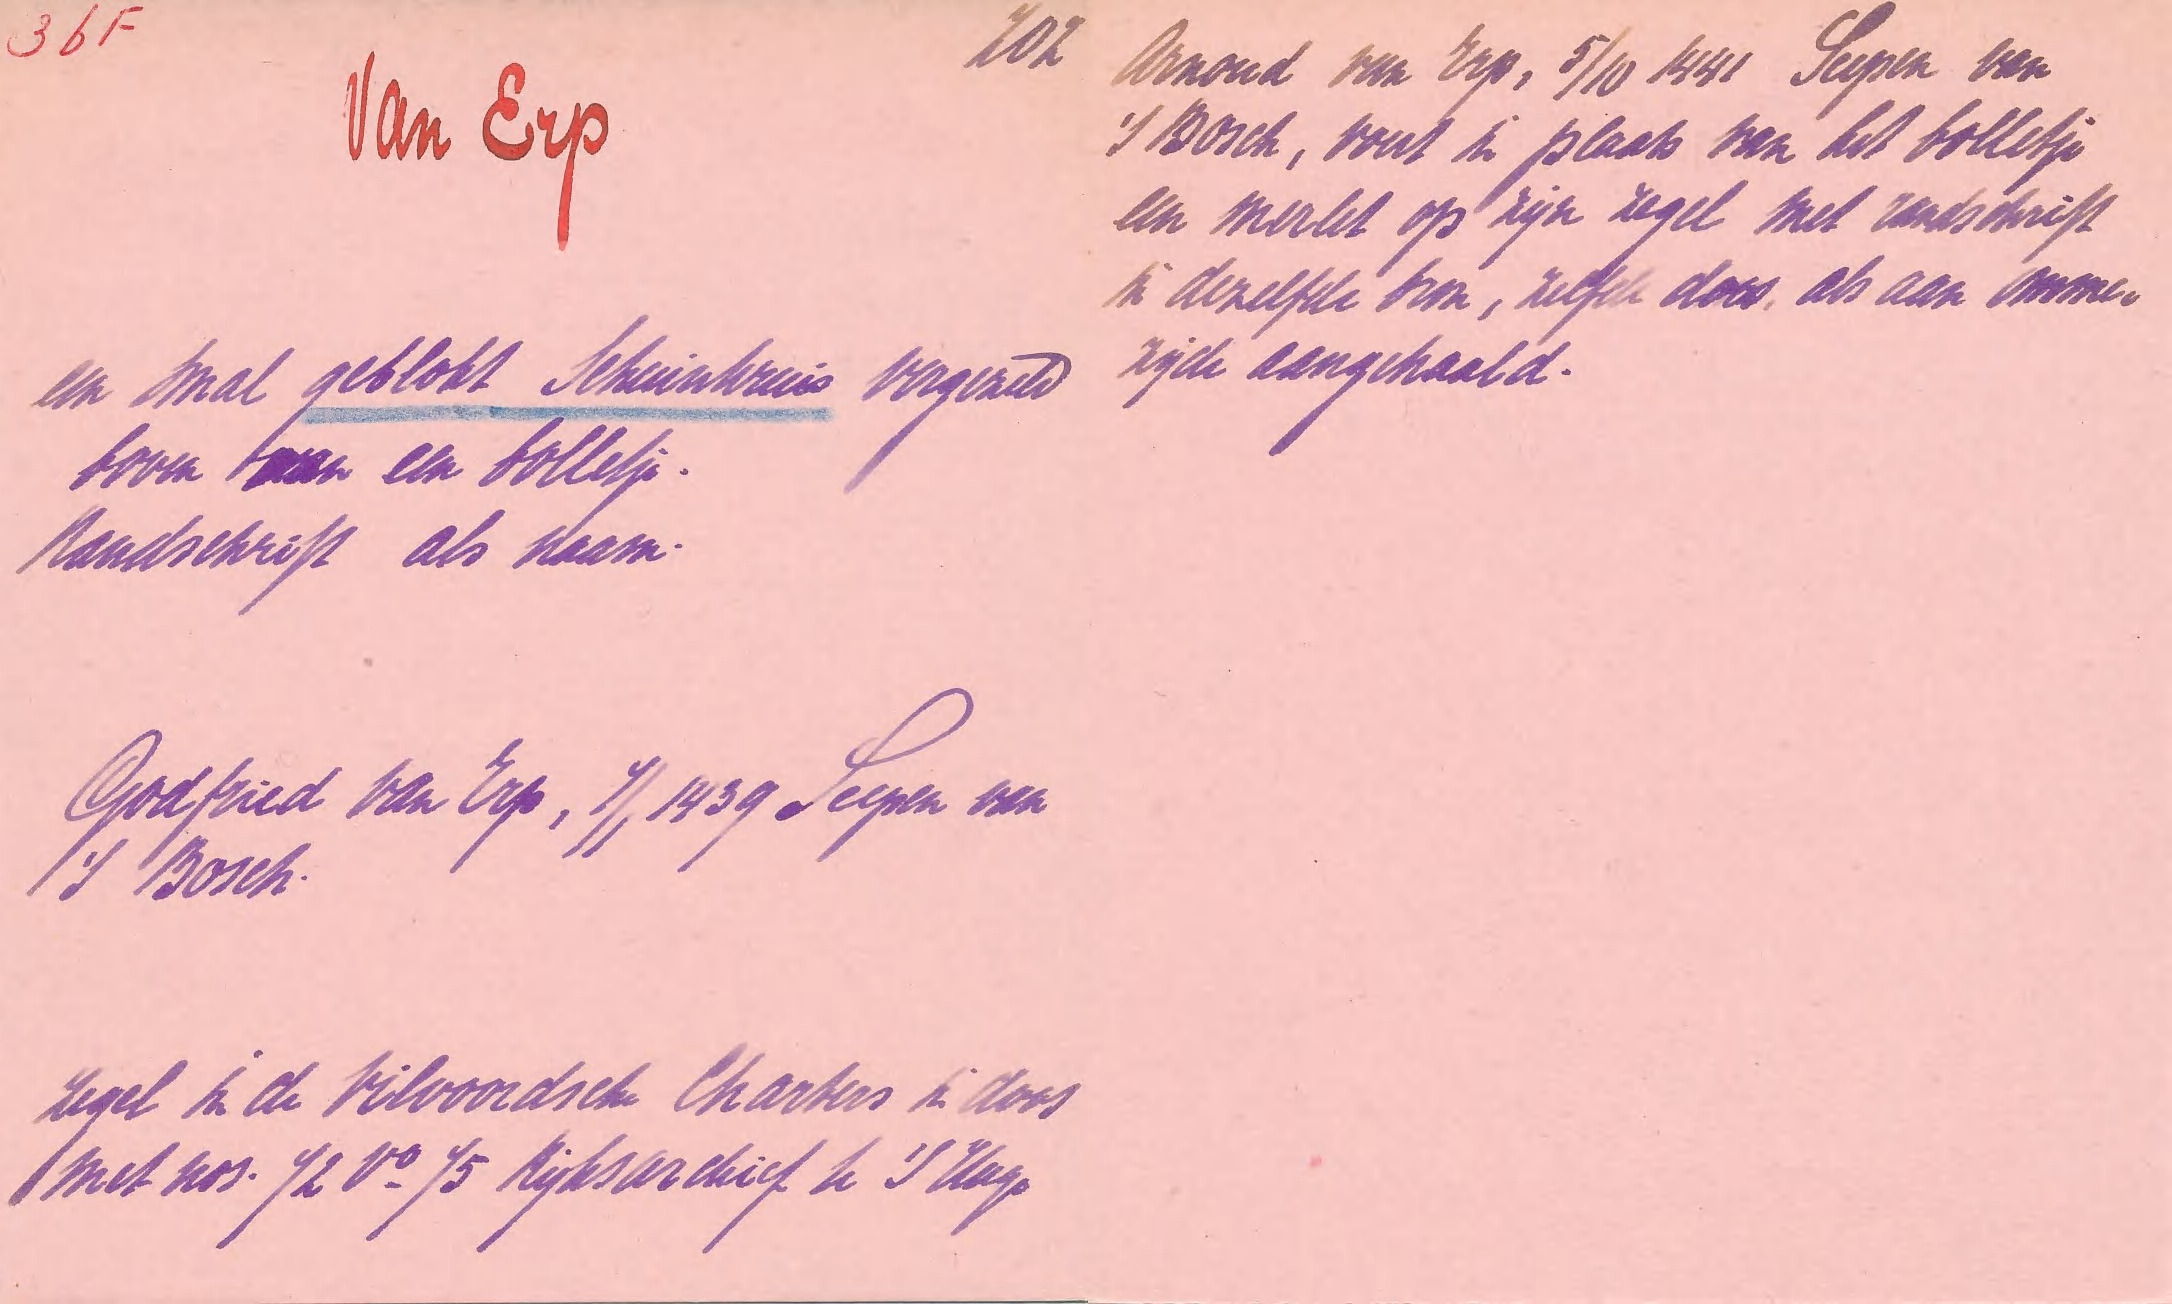 36F
202
Van Erp
een smal geblokt Schuinkruis vergezeld
boven van een bolletje.
Randschrift als naam.
Godfried van Erp, 1439 Scepen van
's Bosch.
Zegel in de Vilvoordsche Charters in doos
met nos. 72 Vo - 75 Rijksarchief te 's Hage
Arnoud van Erp, 5/10 1441 Scepen van
's Bosch, voert in plaats van het bolletje
een merlet op zijn zegel met randschrift
in dezelfde bron, zelfde doos, als aan omme-
zijde aangehaald.